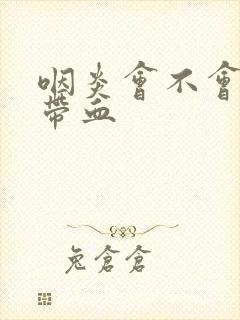 咽炎會不會
帶血
兔倉倉